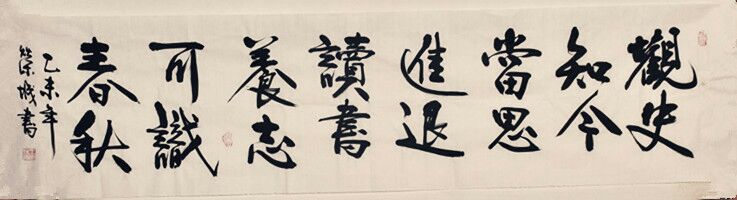 觀史
知今
當思
進退
讀書
養志
可識
春秋
乙未年
榮城書